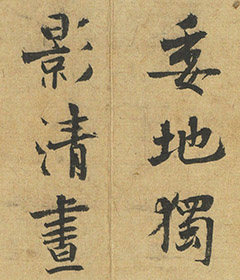 委地獨
影清晝